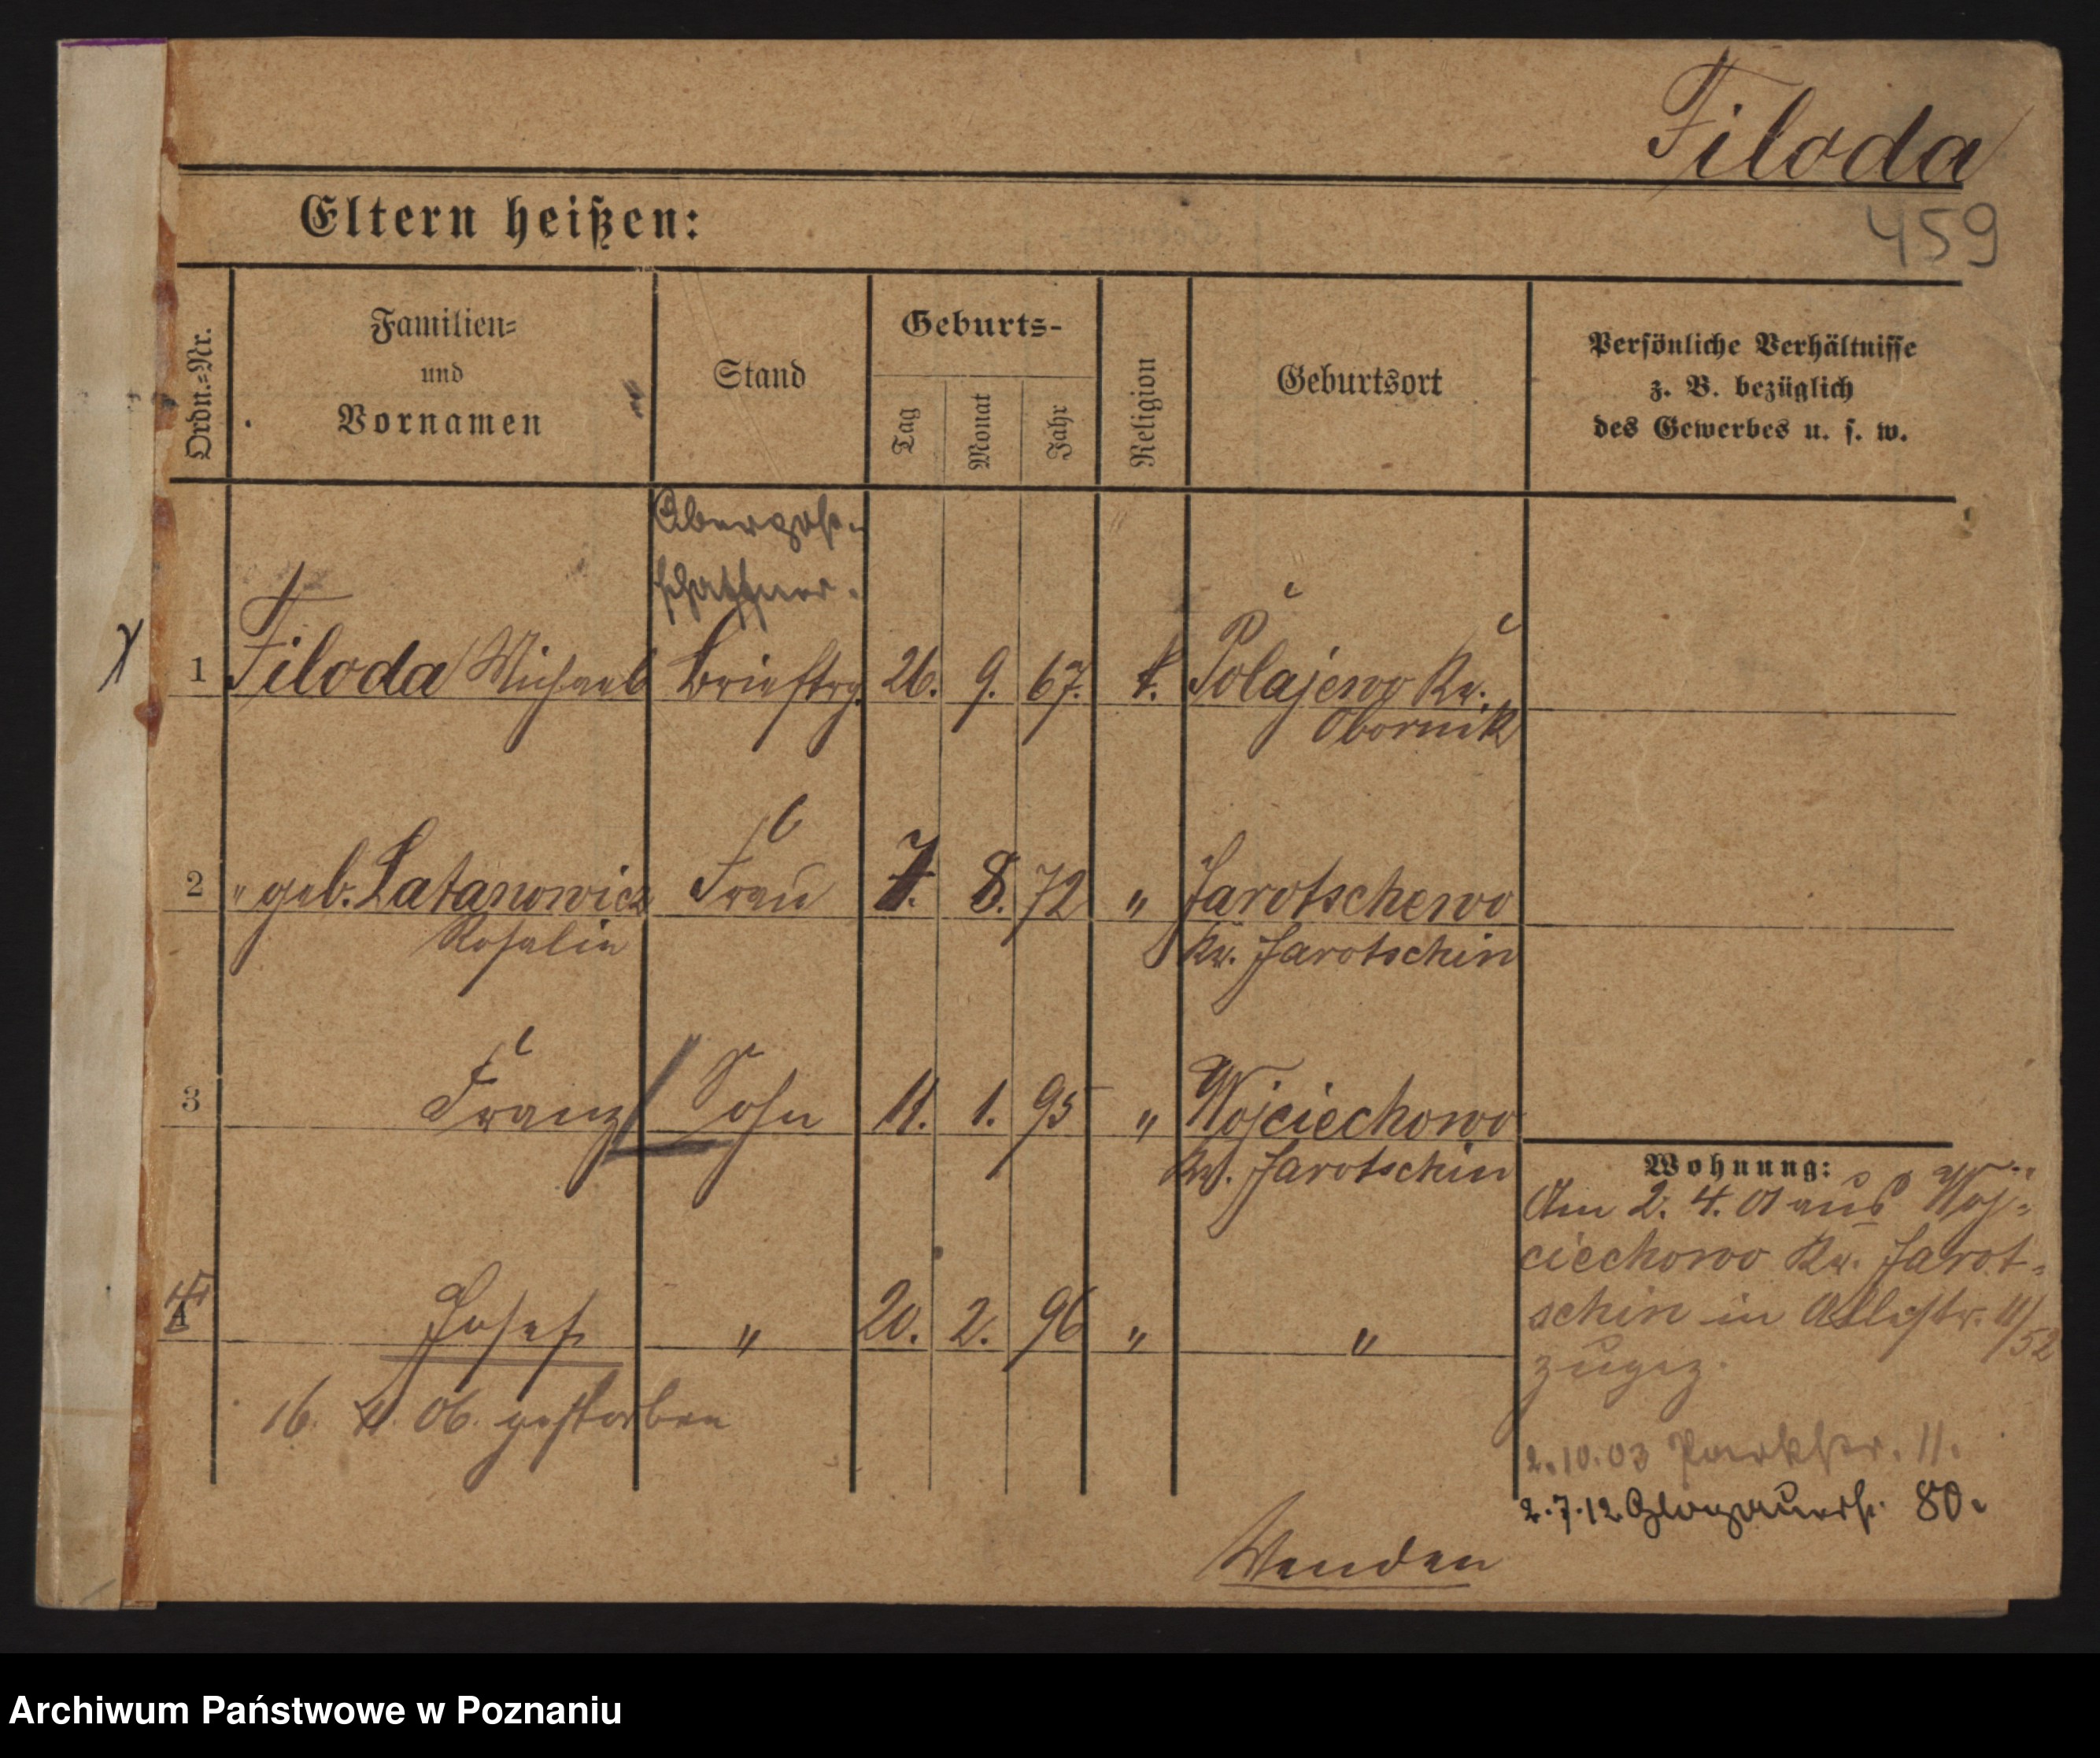 Filoda
459
Eltern heißen:
Ordn.=Nr.
Familien=
und
Vornamen
Stand
Geburts-
Tag
Monat
Jahr
Religion
Geburtsort
Persönliche Verhältnisse
z. B. bezüglich
des Gewerbes u. s. w.
Oberpost-
schaffner.
1 Filoda Michael Brieftrg. 26. 9. 67. k. Polajewo Kr.
Obornik
2 " geb. Latanowicz Frau 7. 8. 72 " Jarotschewo
Rosalie Kr. Jarotschin
3 Franz Sohn 11. 1. 95 " Wojciechowo
Kr. Jarotschin
4 Josef " 20. 2. 96 " "
16. 4. 06. gestorben
Wohnung:
Am 2. 4. 01 aus Woj-
ciechowo Kr. Jarot-
schin in 11/52
zugez.
2.10.03 Parkstr. 11.
2.7.12 Glogauerstr. 80.
Wenden
Archiwum Państwowe w Poznaniu